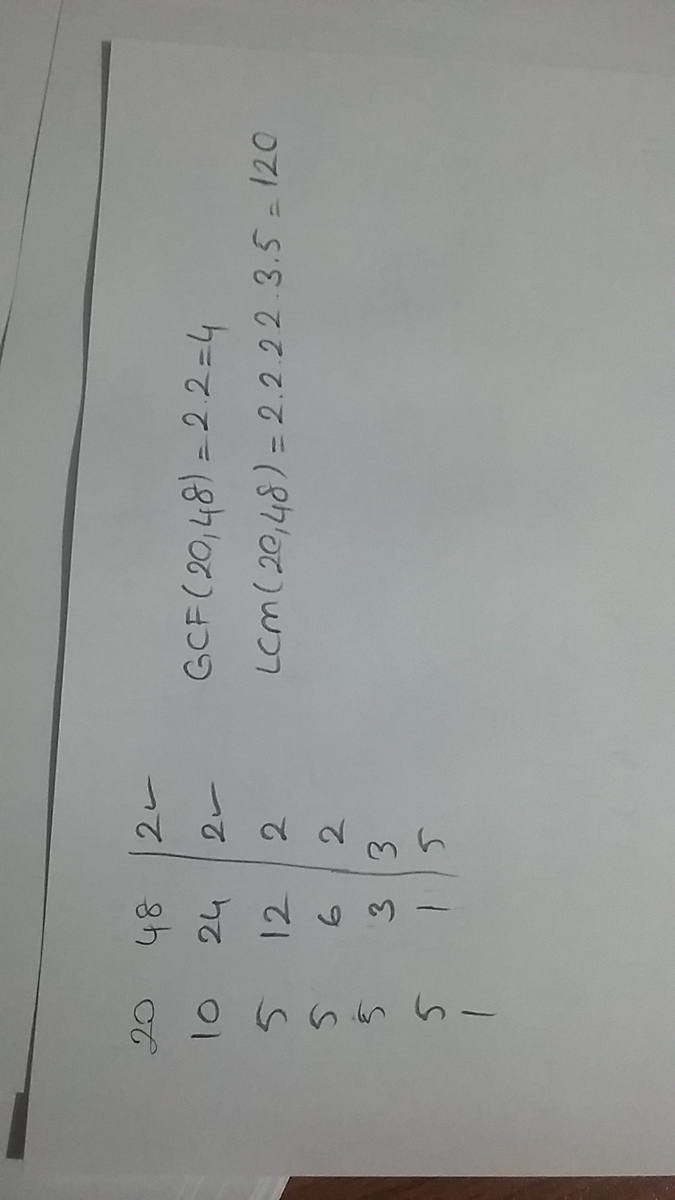 20 48 | 2 ✓
10 24 | 2 ✓ GCF(20,48) = 2.2 = 4
5 12 | 2 LCM(20,48) = 2.2.2 2.3.5 = 120
5 6 | 2
5 3 | 3
5 1 | 5
1